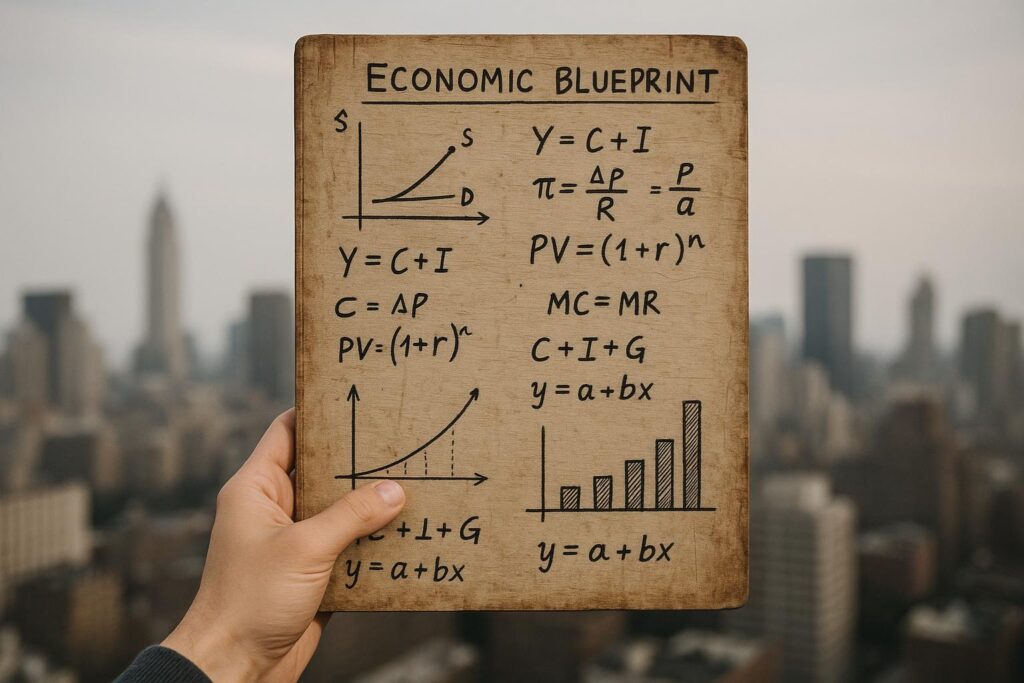 ECONOMIC BLUEPRINT
S
S
D
Y = C + I
C = ΔP
PV = (1+r)^n
C + I + G
y = a + bx
Y = C + I
π = ΔP/R = P/a
PV = (1+r)^n
MC = MR
C + I + G
y = a + bx
y = a + bx